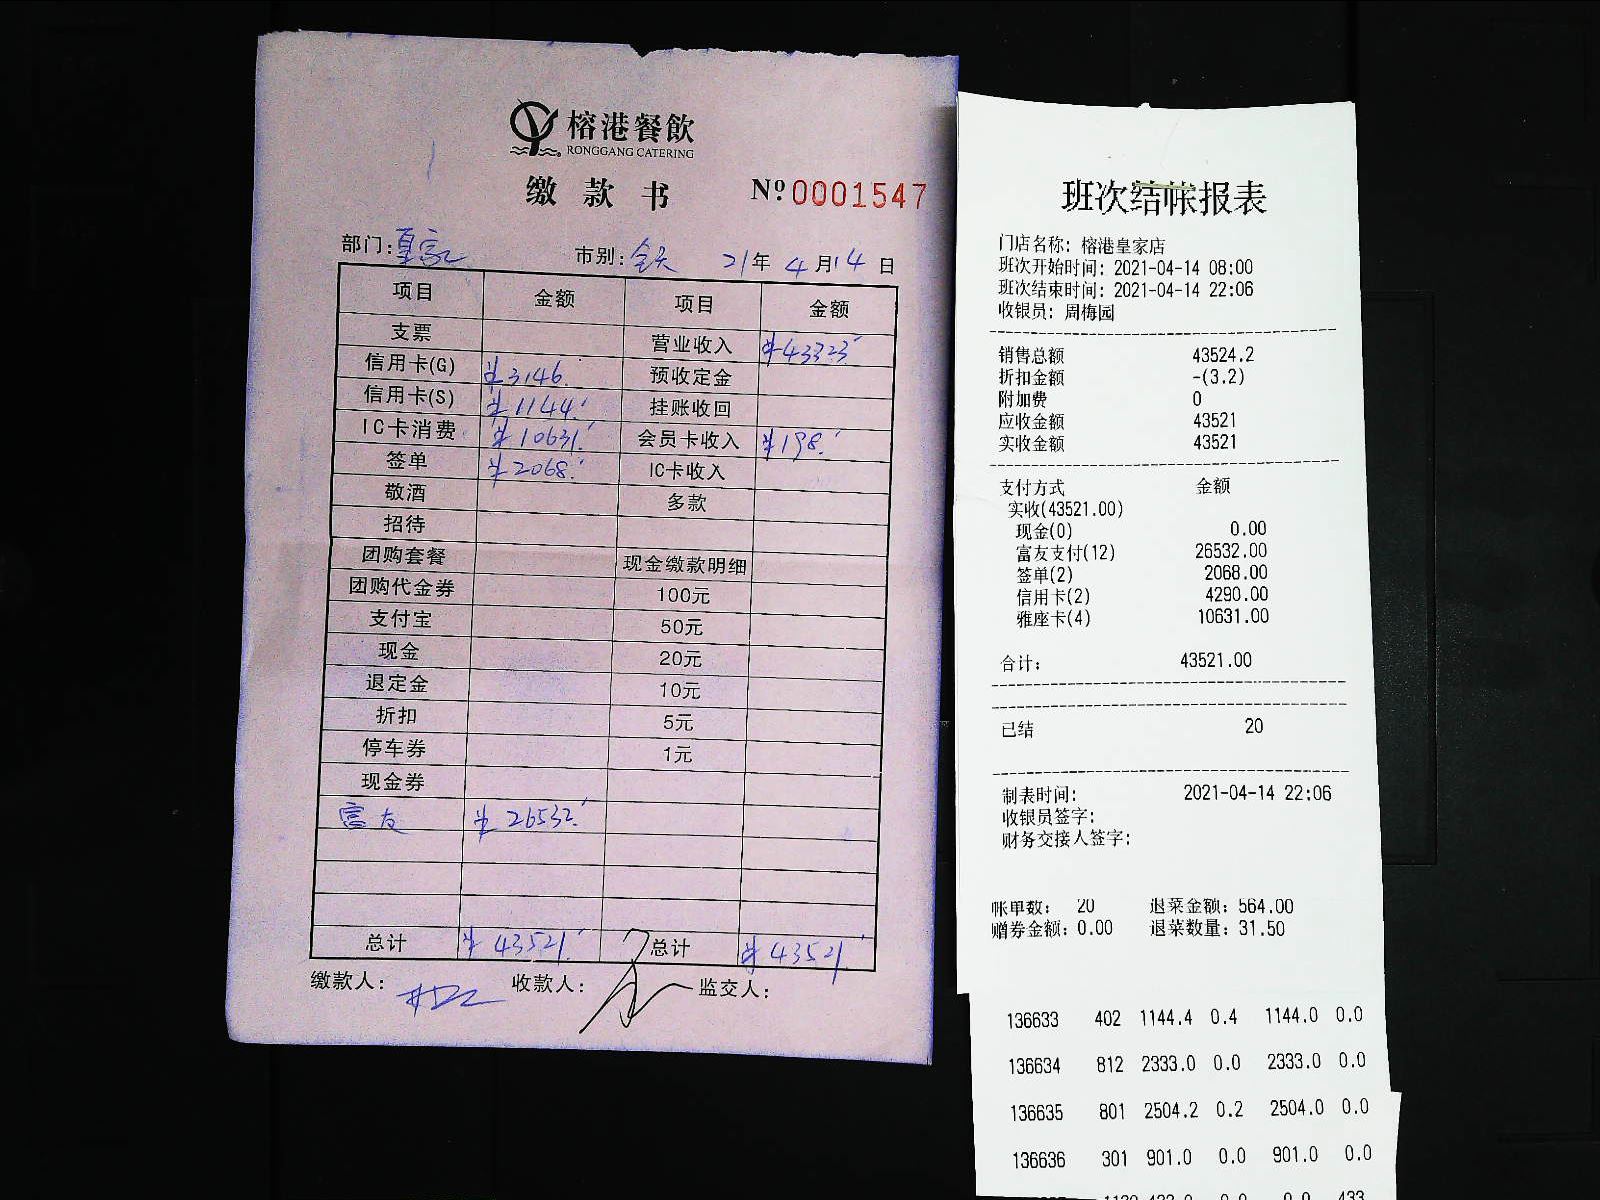 榕港餐飲
RONGGANG CATERING
缴款书
Nº 0001547
部门:皇家 市别:全天 21年4月14日
项目 金额 项目 金额
支票 营业收入 ¥43323
信用卡(G) ¥3146. 预收定金
信用卡(S) ¥1144. 挂账收回
IC卡消费 ¥10631. 会员卡收入 ¥198.
签单 ¥2068. IC卡收入
敬酒 多款
招待
团购套餐 现金缴款明细
团购代金券 100元
支付宝 50元
现金 20元
退定金 10元
折扣 5元
停车券 1元
现金券
富友 ¥26532.
总计 ¥43521. 总计 ¥43521.
缴款人: 收款人: 监交人:
班次结帐报表
门店名称: 榕港皇家店
班次开始时间: 2021-04-14 08:00
班次结束时间: 2021-04-14 22:06
收银员: 周梅园
销售总额 43524.2
折扣金额 -(3.2)
附加费 0
应收金额 43521
实收金额 43521
支付方式 金额
实收(43521.00)
现金(0) 0.00
富友支付(12) 26532.00
签单(2) 2068.00
信用卡(2) 4290.00
雅座卡(4) 10631.00
合计: 43521.00
已结 20
制表时间: 2021-04-14 22:06
收银员签字:
财务交接人签字:
帐单数: 20 退菜金额: 564.00
赠券金额: 0.00 退菜数量: 31.50
136633 402 1144.4 0.4 1144.0 0.0
136634 812 2333.0 0.0 2333.0 0.0
136635 801 2504.2 0.2 2504.0 0.0
136636 301 901.0 0.0 901.0 0.0